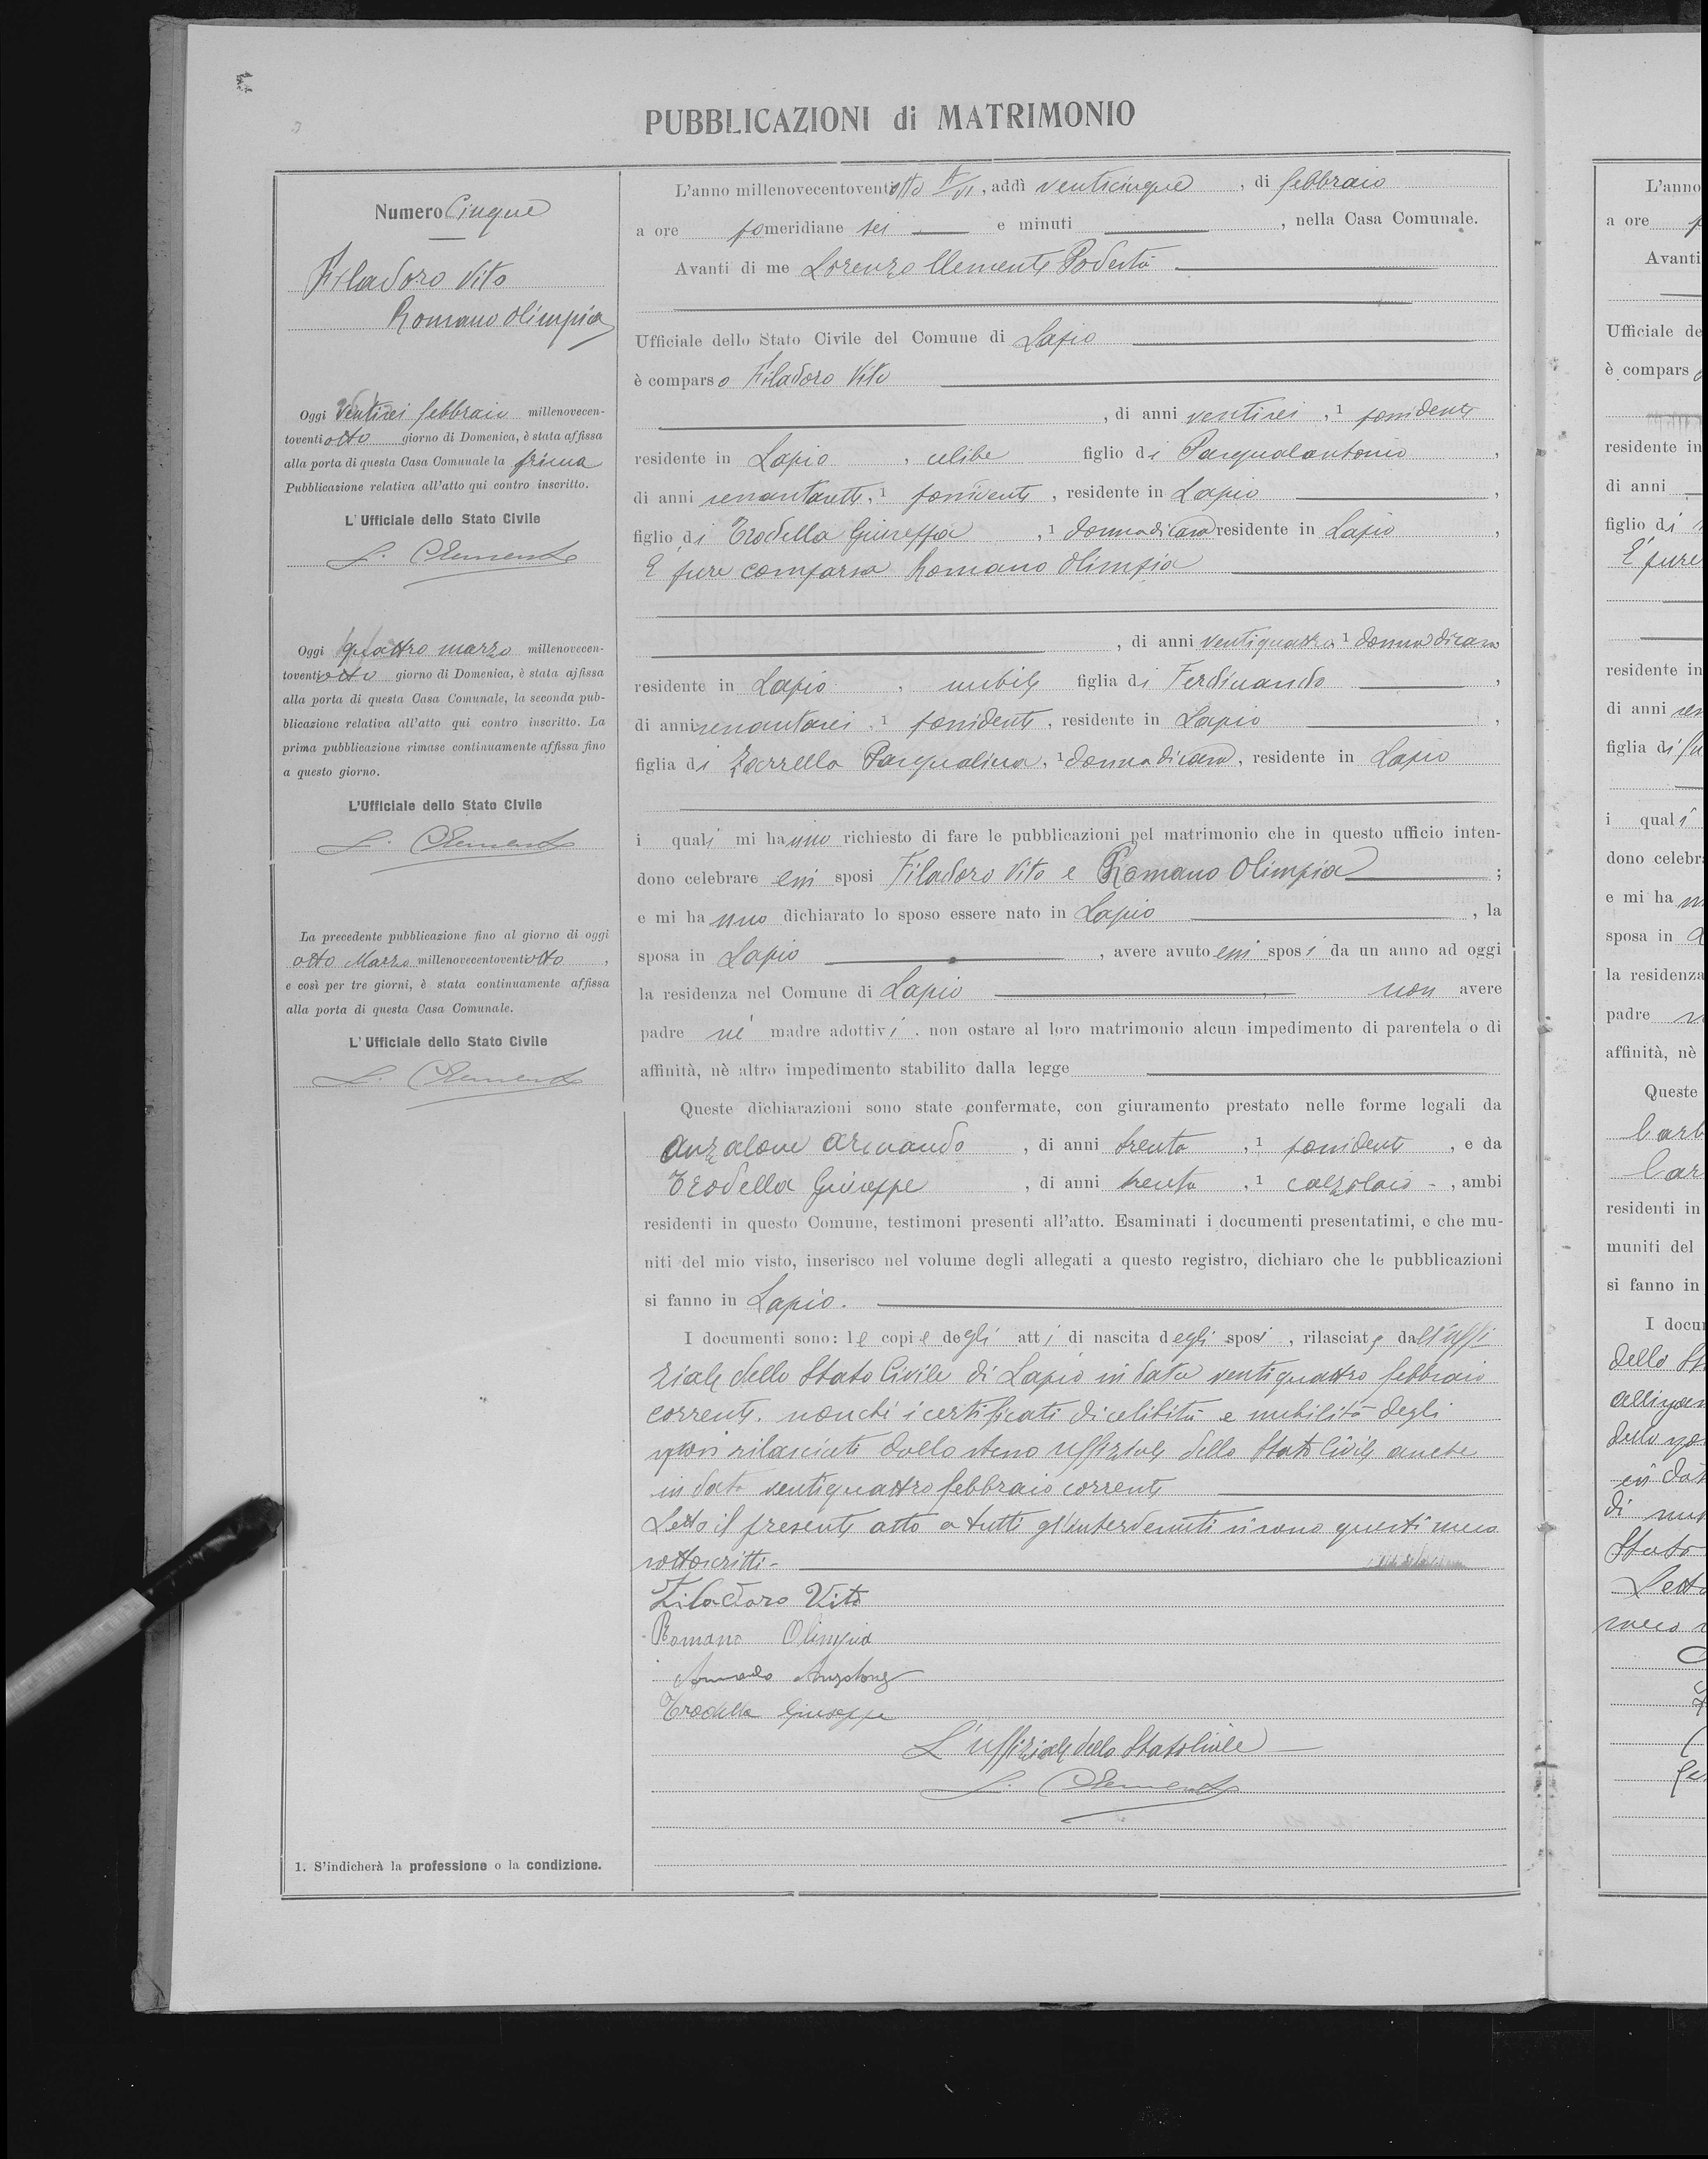 PUBBLICAZIONI di MATRIMONIO
Numero Cinque
Filadoro Vito
Romano Olimpia
Oggi ventisei febbraio millenovecen-
toventiotto giorno di Domenica, è stata affissa
alla porta di questa Casa Comunale la prima
Pubblicazione relativa all'atto qui contro inscritto.
L'Ufficiale dello Stato Civile
L. Clemente
Oggi quattro marzo millenovecen-
toventiotto giorno di Domenica, è stata affissa
alla porta di questa Casa Comunale, la seconda pub-
blicazione relativa all'atto qui contro inscritto. La
prima pubblicazione rimase continuamente affissa fino
a questo giorno.
L'Ufficiale dello Stato Civile
L. Clemente
La precedente pubblicazione fino al giorno di oggi
otto Marzo millenovecentoventiotto,
e così per tre giorni, è stata continuamente affissa
alla porta di questa Casa Comunale.
L'Ufficiale dello Stato Civile
L. Clemente
1. S'indicherà la professione o la condizione.
L'anno millenovecentoventiotto, addì venticinque, di febbraio
a ore pomeridiane sei e minuti, nella Casa Comunale.
Avanti di me Lorenzo Clemente Podestà
Ufficiale dello Stato Civile del Comune di Lapio
è comparso Filadoro Vito
, di anni ventisei, 1 possidente
residente in Lapio, celibe figlio di Pasqualantonio,
di anni sessantasette, 1 possidente, residente in Lapio,
figlio di Trodella Giuseppa, 1 donna di casa residente in Lapio,
E pure comparsa Romano Olimpia
, di anni ventiquattro 1 donna di casa
residente in Lapio, nubile figlia di Ferdinando,
di anni sessantasei, 1 possidente, residente in Lapio,
figlia di Zarrella Pasqualina, 1 donna di casa, residente in Lapio
i quali mi hanno richiesto di fare le pubblicazioni pel matrimonio che in questo ufficio inten-
dono celebrare essi sposi Filadoro Vito e Romano Olimpia;
e mi hanno dichiarato lo sposo essere nato in Lapio, la
sposa in Lapio, avere avuto essi sposi da un anno ad oggi
la residenza nel Comune di Lapio non avere
padre né madre adottivi, non ostare al loro matrimonio alcun impedimento di parentela o di
affinità, nè altro impedimento stabilito dalla legge
Queste dichiarazioni sono state confermate, con giuramento prestato nelle forme legali da
Anzalone Armando, di anni trenta, 1 possidente, e da
Trodella Giuseppe, di anni trenta, 1 calzolaio -, ambi
residenti in questo Comune, testimoni presenti all'atto. Esaminati i documenti presentatimi, e che mu-
niti del mio visto, inserisco nel volume degli allegati a questo registro, dichiaro che le pubblicazioni
si fanno in Lapio.
I documenti sono: le copie degli atti di nascita degli sposi, rilasciate dall'uffi
ziale dello Stato Civile di Lapio in data ventiquattro febbraio
corrente. nonché i certificati di celibità e nubilità degli
sposi rilasciati dallo stesso uffiziale dello Stato Civile anche
in data ventiquattro febbraio corrente
Letto il presente atto a tutti gl'intervenuti si sono questi meco
sottoscritti -
Filadoro Vito
Romano Olimpia
Armando Anzalone
Trodella Giuseppe
L'uffiziale dello Stato Civile
L. Clemente
L'anno
a ore
Avanti
Ufficiale de
è compars
residente in
di anni
figlio di
E' pure
residente in
di anni
figlia di
i quali
dono celebr
e mi ha
sposa in
la residenza
padre
affinità, nè
Queste
residenti in
muniti del
si fanno in
I docu